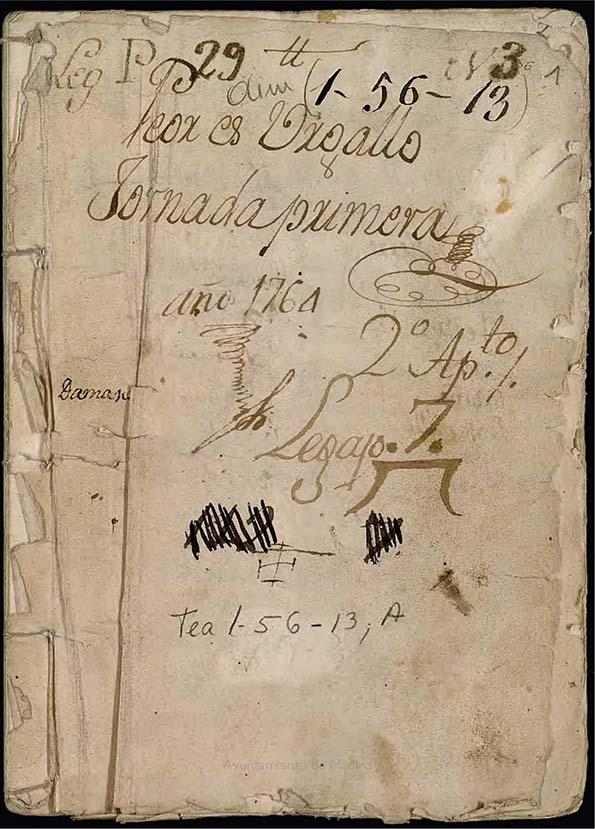 Leg P 29 tt N 3
dim (1-56-13) A
Peor es Vrgallo
Jornada primera
año 1764
2º Ap.to 1.
Daman
Legajo. 7.
Tea 1-56-13, A
Ayuntamiento de Madrid